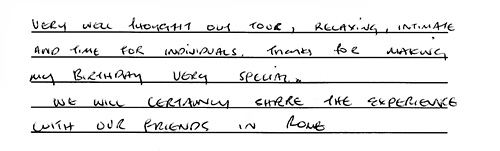 VERY WELL THOUGHT OUT TOUR, RELAXING, INTIMATE
AND TIME FOR INDIVIDUALS. THANKS FOR MAKING
MY BIRTHDAY VERY SPECIAL.
WE WILL CERTAINLY SHARE THE EXPERIENCE
WITH OUR FRIENDS IN ROME